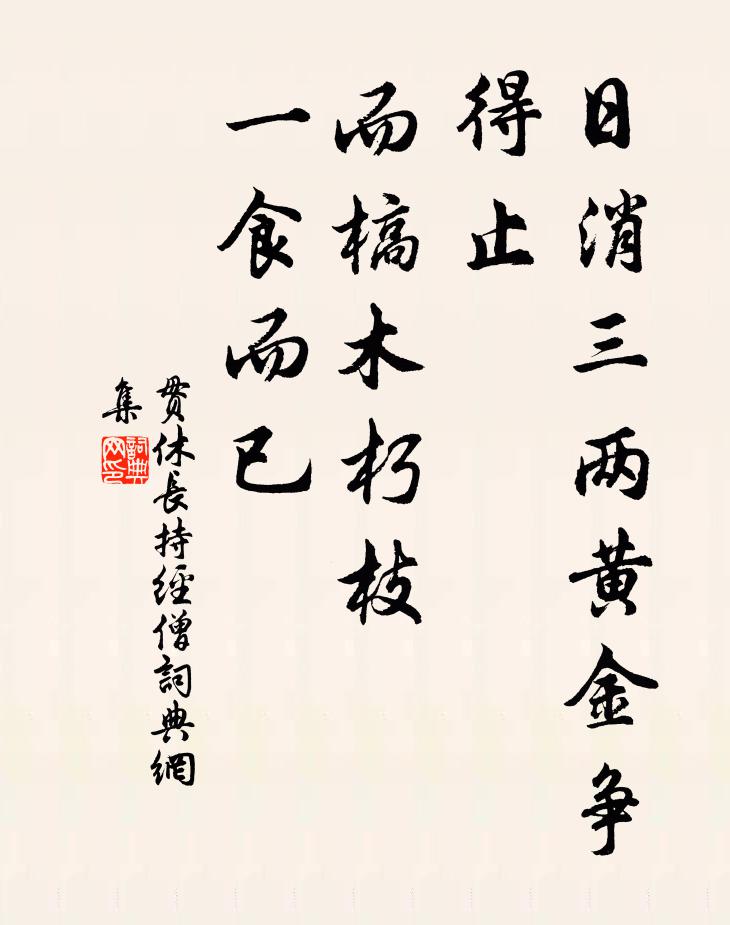 日消三两黄金争
得止
而槁木朽枝
一食而已
贯休長持經僧詞典網
集
詞典网印